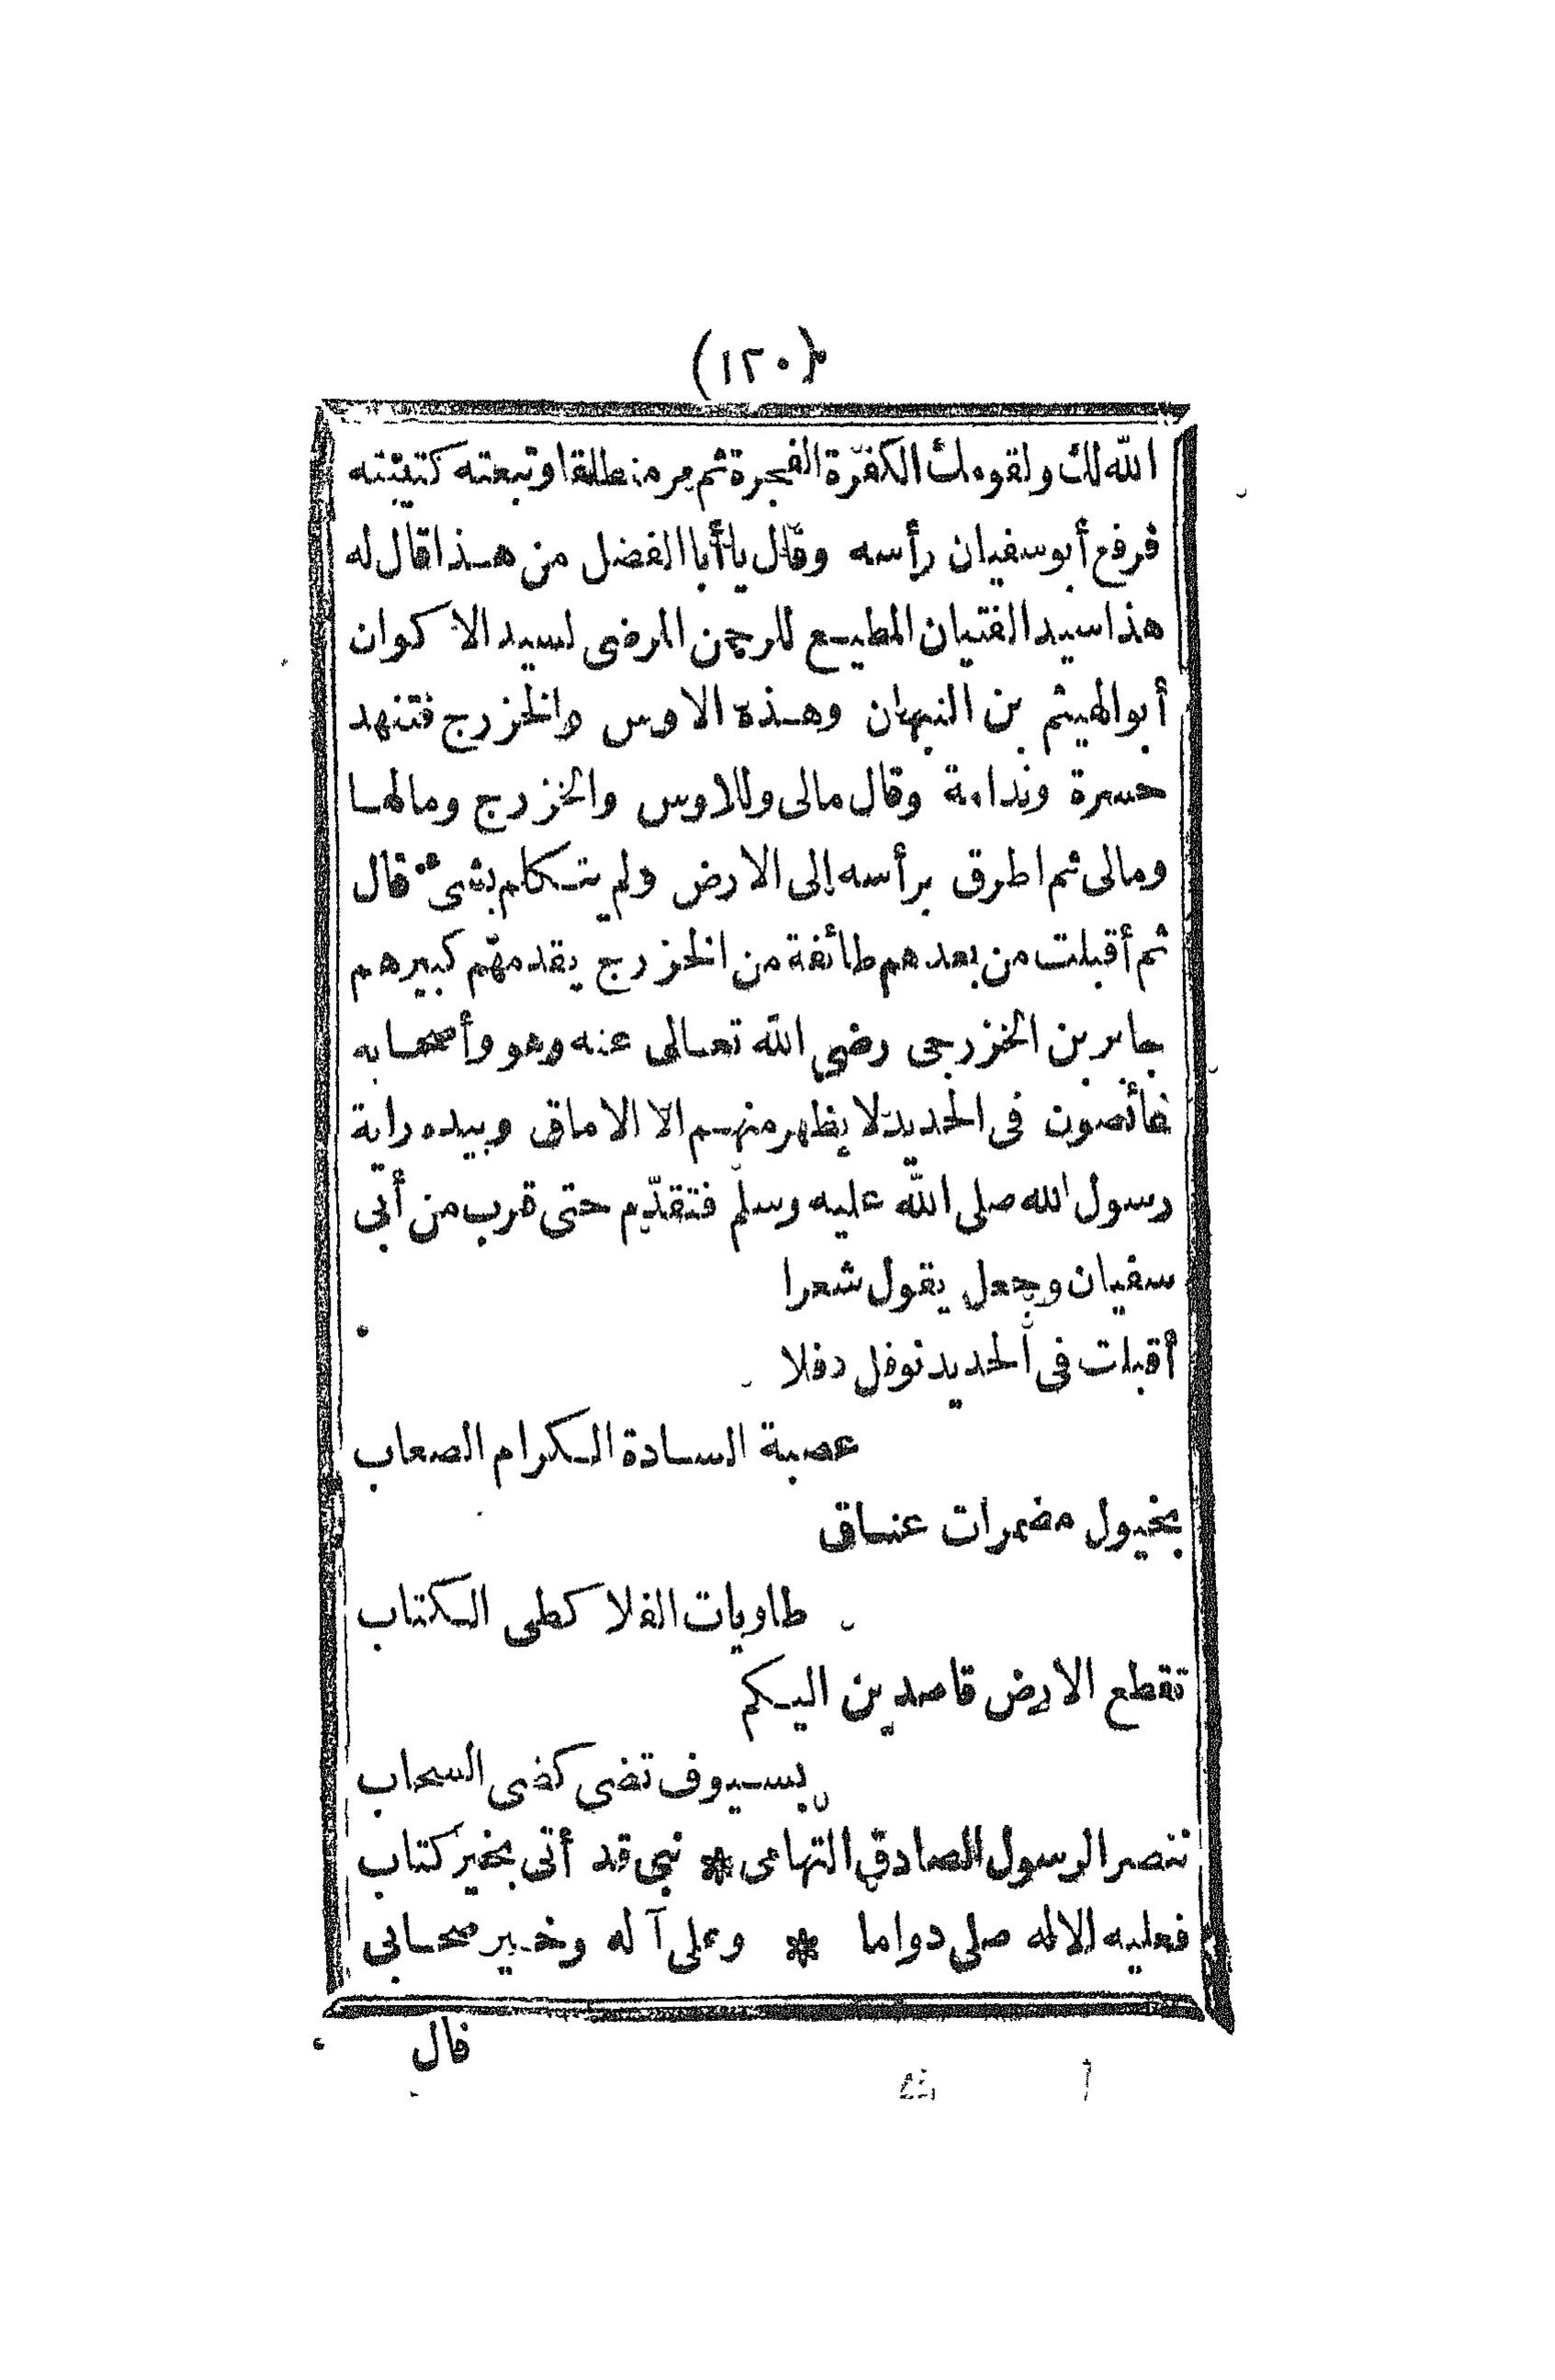 (١٢٠)
الله لك ولقومك الكفرة الفجرة ثم مر منطلقا وتبعته كتيبته
فرفع أبو سفيان رأسه وقال يا أبا الفضل من هذا قال له
هذا سيد الفتيان المطيع للرحمن المرضى لسيد الاكوان
أبو الهيثم بن النبهان وهذه الاوس والخزرج فتنهد
حسرة وندامة وقال مالى وللاوس والخزرج ومالها
ومالى ثم اطرق برأسه إلى الارض ولم يتكلم بشىء قال
ثم أقبلت من بعدهم طائفة من الخزرج يقدمهم كبيرهم
جابر بن الخزرجى رضى الله تعالى عنه وهو وأصحابه
غائصون فى الحديد لا يظهر منهم الا الاماق وبيده راية
رسول الله صلى الله عليه وسلم فتقدّم حتى قرب من أبى
سفيان وجعل يقول شعرا
أقبلت فى الحديد نوفل دفلا
عصبة السادة الكرام الصعاب
بخيول مضمرات عناق
طاويات الفلا كطى الكتاب
تقطع الارض قاصدين اليكم
بسيوف تضى كضى السحاب
ننصر الرسول الصادق التهامى * نبى قد أتى بخير كتاب
فعليه الاله صلى دواما * وعلى آله وخير صحابى
قال